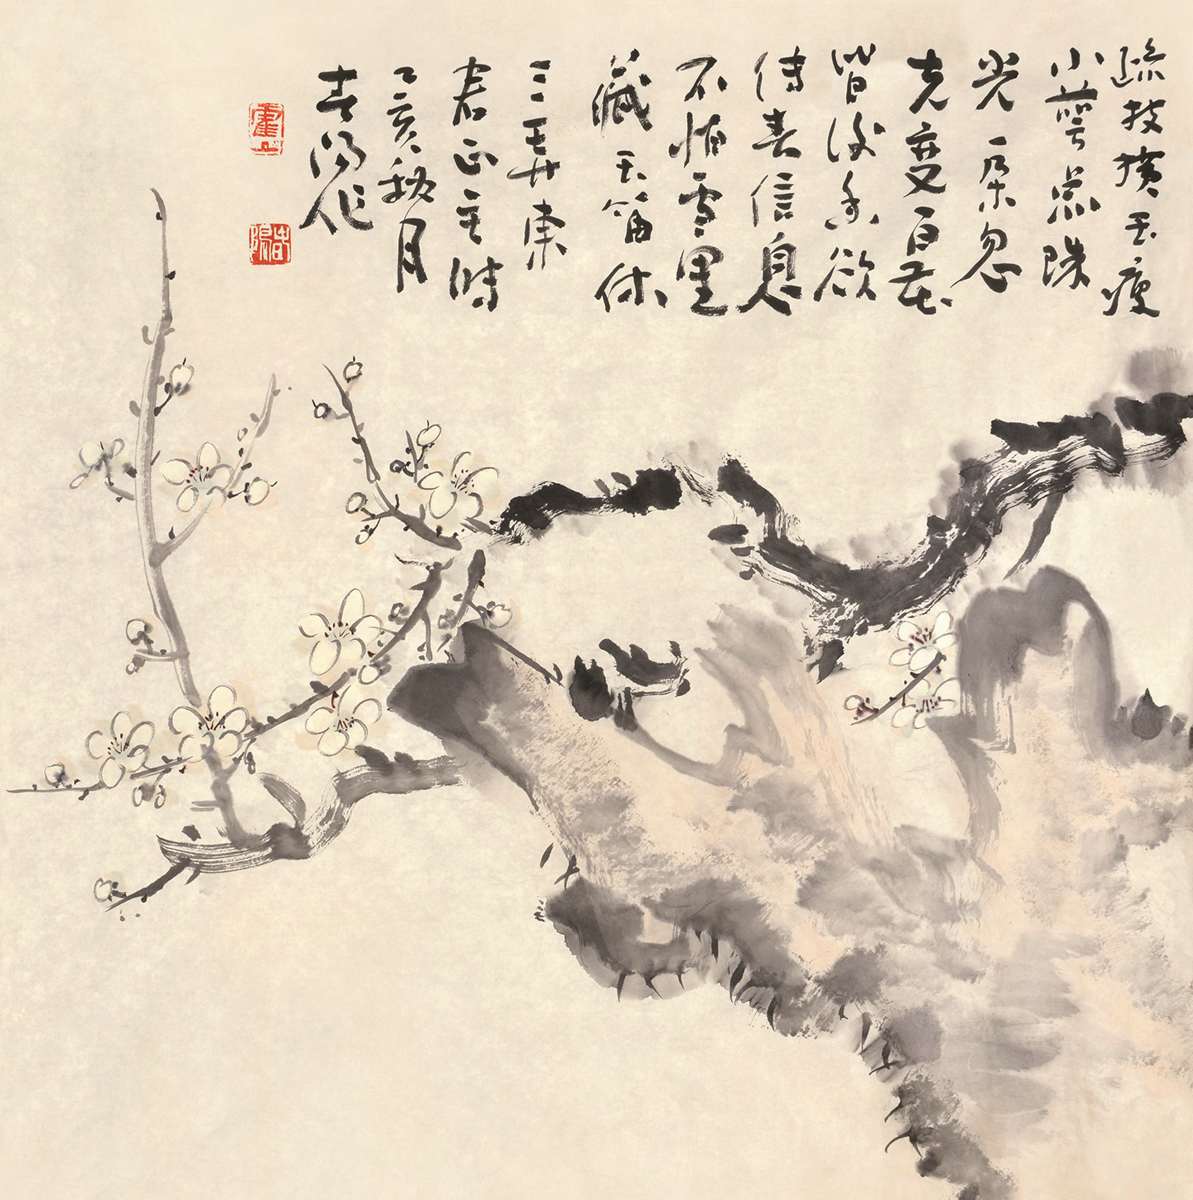 疏枝横玉瘦
小萼点珠
光一朵忽
先变百花
皆後香欲
传春信息
不怕雪里
藏玉笛休
三弄東
君正主時
己亥秋月
春阳作